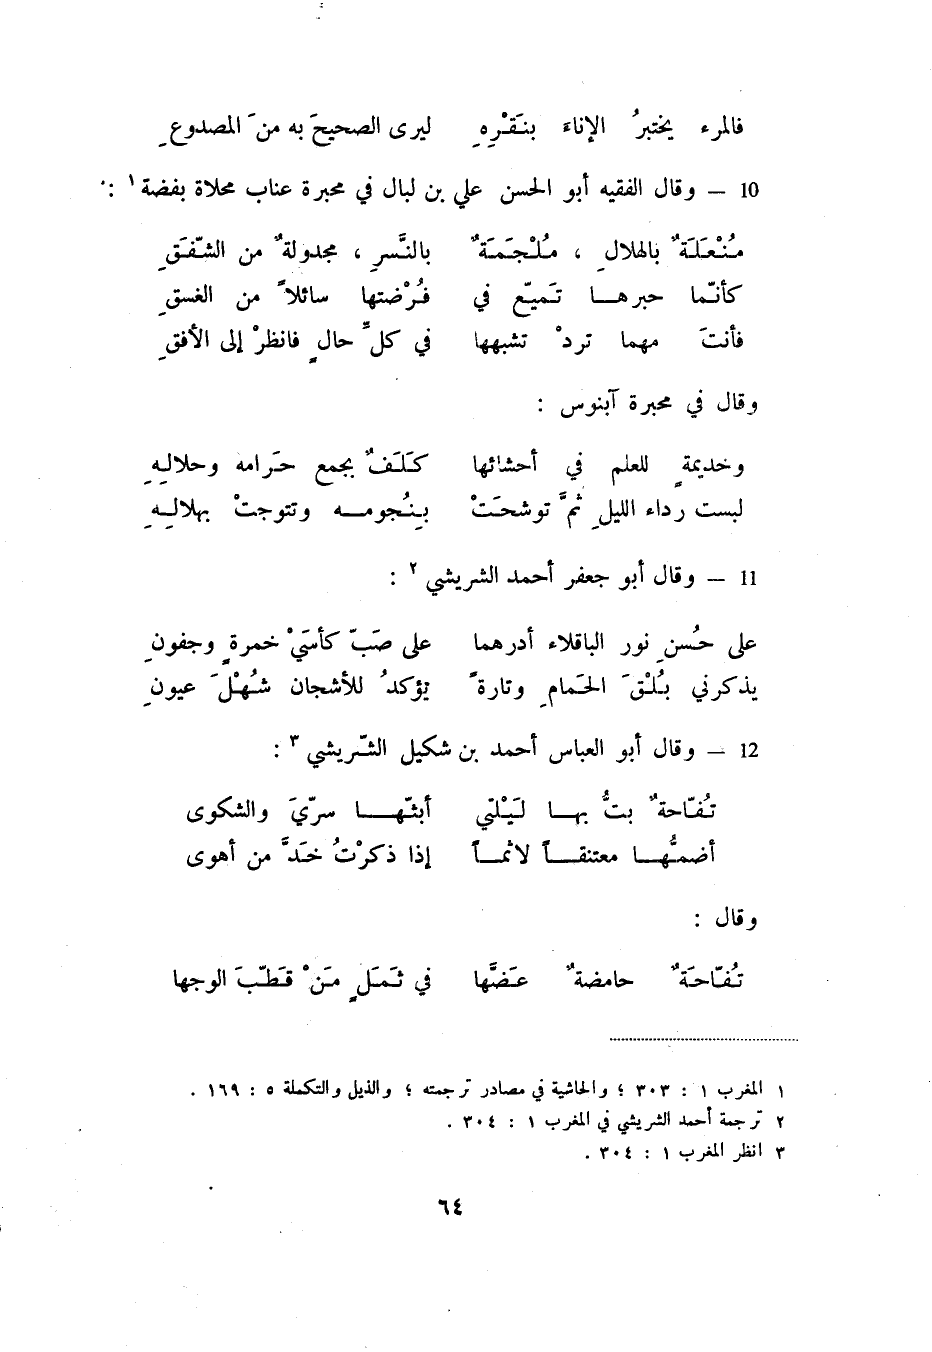 فالمرء يختبرُ الإناءَ بنَقْرِهِ ليرى الصحيحَ به منَ المصدوعِ
10 — وقال الفقيه أبو الحسن علي بن لبال في محبرة عناب محلاة بفضة ١ :
مُنْعَلَةٌ بالهلالِ ، مُلْجَمَةٌ بالنَّسرِ ، مجدولةٌ من الشّفَقِ
كأنّما حبرهـــا تَميّع في فُرْضتها سائلاً من الغسقِ
فأنتَ مهما تردْ تشبهها في كلِّ حالٍ فانظرْ إلى الأفقِ
وقال في محبرة آبنوس :
وخديمةٍ للعلم في أحشائها كَلَفٌ بجمع حَرامه وحلالِهِ
لبست رداء الليلِ ثمَّ توشحَتْ بِنُجومـــه وتتوجتْ بهلالِهِ
11 — وقال أبو جعفر أحمد الشريشي ٢ :
على حُسنِ نور الباقلاء أدرهما على صَبّ كأسَيْ خمرةٍ وجفونِ
يذكرني بُلْقَ الحَمامِ وتارةً يؤكدُ للأشجان شُهْلَ عيونِ
12 — وقال أبو العباس أحمد بن شكيل الشّريشي ٣ :
تُفّاحةٌ بتُّ بهـــا لَيْلتي أبثّهـــا سرّيَ والشكوى
أضمُّهـــا معتنقـــاً لاثمـــاً إذا ذكرْتُ خَدَّ من أهوى
وقال :
تُفّاحَةٌ حامضةٌ عَضَّها في ثَمَلٍ مَنْ قَطّبَ الوجها
١ المغرب ١ : ٣٠٣ ؛ والحاشية في مصادر ترجمته ؛ والذيل والتكملة ٥ : ١٦٩ .
٢ ترجمة أحمد الشريشي في المغرب ١ : ٣٠٤ .
٣ انظر المغرب ١ : ٣٠٤ .
٦٤